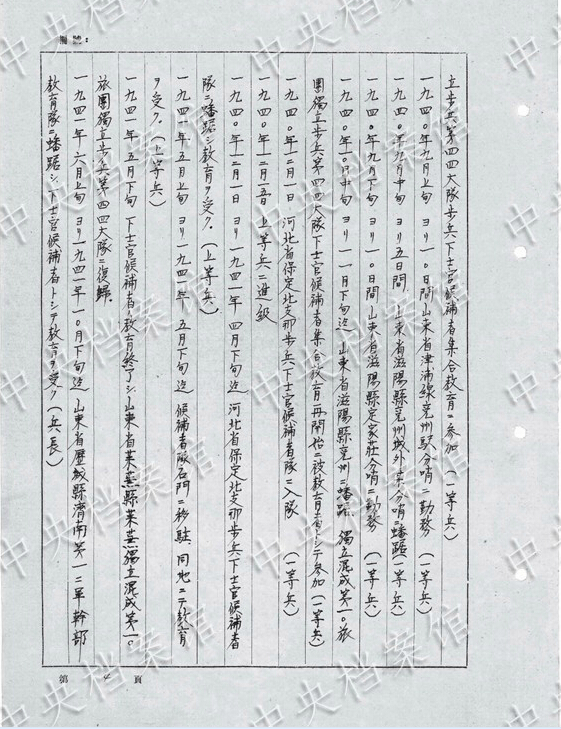 編號：
立步兵第四四大隊步兵下士官候補者集合教育ニ参加 (一等兵)
一九四〇年九月上旬 ヨリ 一〇日間 山東省津浦線兗州駅分哨ニ勤務 (一等兵)
一九四〇年九月中旬 ヨリ 五日間 山東省滋陽縣兗州城外東分哨ニ蟠踞 (一等兵)
一九四〇年九月下旬 ヨリ 一〇日間 山東省滋陽縣定家莊分哨ニ勤務 (一等兵)
一九四〇年一〇月中旬 ヨリ 一一月下旬迄 山東省滋陽縣兗州ニ蟠踞 獨立混成第一〇旅
團獨立步兵第四四大隊下士官候補者集合教育再開始ニ被教育者トシテ参加 (一等兵)
一九四〇年一二月一日 河北省保定北支那步兵下士官候補者隊ニ入隊 (一等兵)
一九四〇年一二月 上等兵ニ進級
一九四〇年一二月一日 ヨリ 一九四一年 四月下旬迄 河北省保定北支那步兵下士官候補者
隊ニ蟠踞シ教育ヲ受ク. (上等兵)
一九四一年五月上旬 ヨリ 一九四一年 五月下旬迄 候補者隊石門ニ移駐 同地ニテ教育
ヲ受ク. (上等兵)
一九四一年五月下旬 下士官候補者教育終了シ 山東省萊蕪縣萊蕪獨立混成第一〇
旅團獨立步兵第四四大隊ニ復歸.
一九四一年六月上旬 ヨリ 一九四一年一〇月下旬迄 山東省歷城縣濟南第一二軍幹部
教育隊ニ蟠踞シ、下士官候補者トシテ教育ヲ受ク (兵長)
第 4 頁
中央档案馆